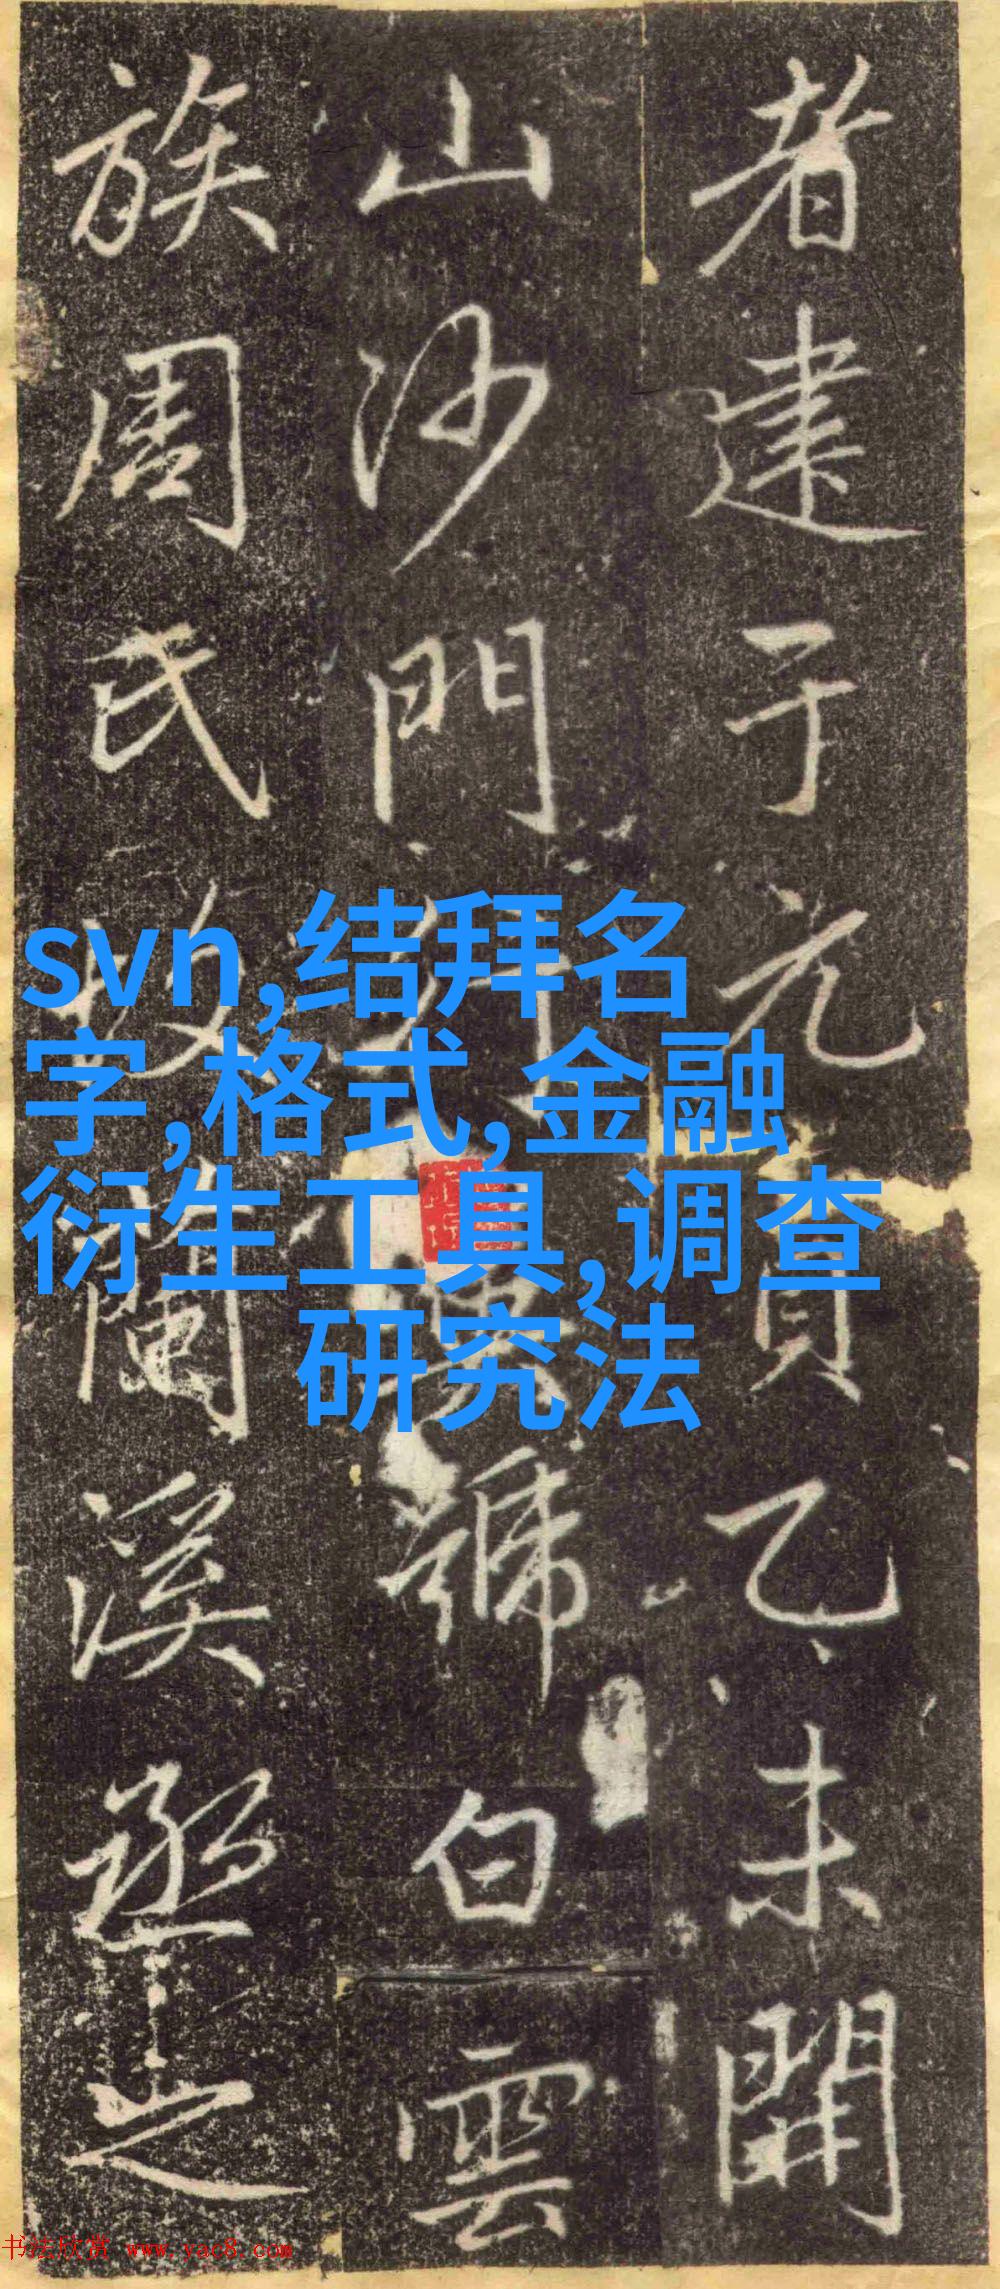 者建于元貞乙未開
山沙門號白雲
族周氏故蘭溪丞之
svn,结拜名
字,格式,金融
衍生工具,调查
研究法
书法欣赏 www.yac8.com